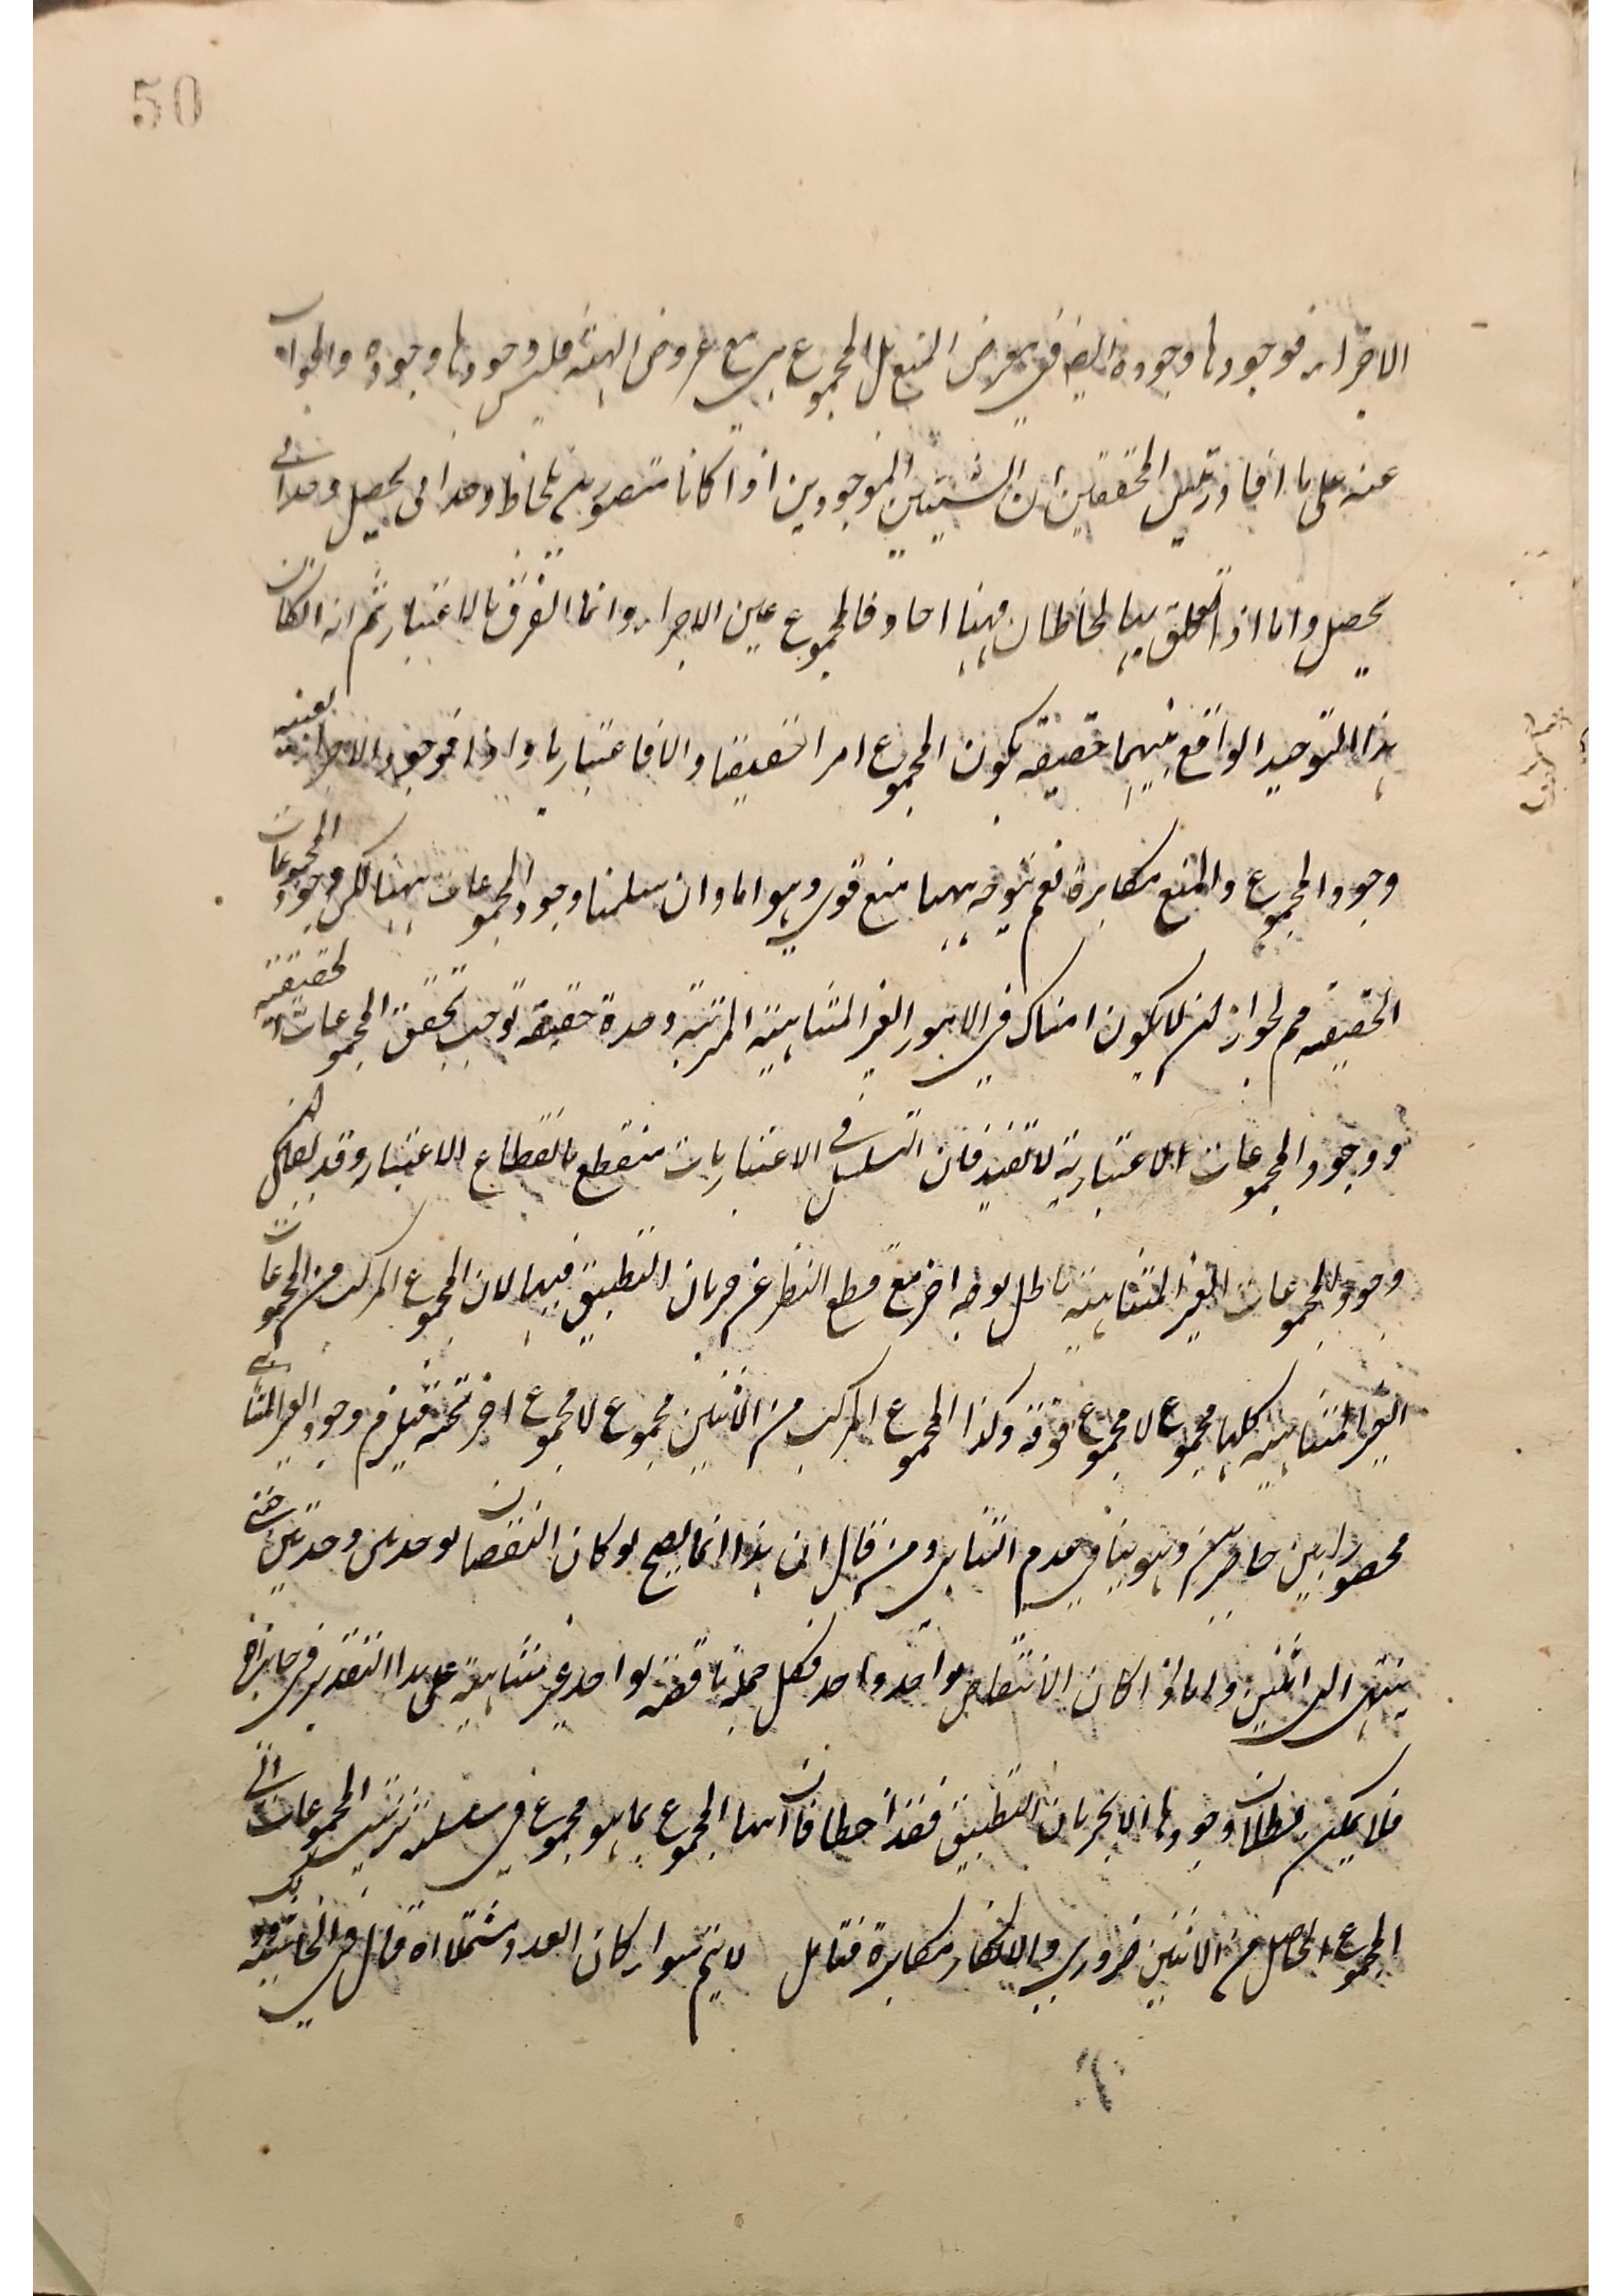 50
الاجزاء فوجودها وجوده ايضا في معرض المنع بل المجموع هي مع عروض الهيئة فليس وجودها وجوده والجواب
عنه على ما افاد بعض المحققين ان الشيئين الموجودين اذا كانا متصورين بلحاظ وحداني يحصل وحداني
يحصل واما اذا تعلق بهما لحاظان فهنا احاد فالمجموع عين الاجزاء وانما الفرق بالاعتبار ثم انه ان كان
هذا التوحيد الواقع بينهما حقيقة يكون المجموع امرا حقيقيا والا فاعتباريا واذا فوجود الاجزاء بعينه
وجود المجموع والمنع مكابرة نعم يتوجه ههنا منع قوي وهو انا وان سلمنا وجود المجموعات ههنا لكن وجود المجموعات
الحقيقية مم لجواز ان لا يكون هناك في الامور الغير المتناهية المترتبة وحدة حقيقة توجب تحقق المجموعات الحقيقية
ووجود المجموعات الاعتبارية لا تفيد فان التسلسل في الاعتباريات منقطع بانقطاع الاعتبار وقد يقال ان
وجود المجموعات الغير المتناهية باطل بوجه اخر مع قطع النظر عن جريان التطبيق فيها لان المجموع المركب من المجموعات
الغير المتناهية كلها مجموع لا مجموع فوقه وكذا المجموع المركب من الاثنين مجموع لا مجموع اخر تحته فيلزم وجود الغير المتناهي
محصورا بين حاصرين وهو ينافي عدم التناهي ومن قال ان هذا انما يصح لو كان النقصان بوحدتين وحدتين حتى
ينتهي الى اثنين واما اذا كان الانتقاص بواحد واحد فكل جملة ناقصة بواحد غير متناهية على هذا التقدير في جانب اخر
فلا يمكن بطلان وجودها الا بجريان التطبيق فقد اخطأ فان انتهاء المجموع بما هو مجموع في سلسلة ترتيب المجموعات الى
المجموع الحاصل من الاثنين ضروري والانكار مكابرة فتأمل لا يتم سواء كان العدد مشتملا اه قال في الحاشية